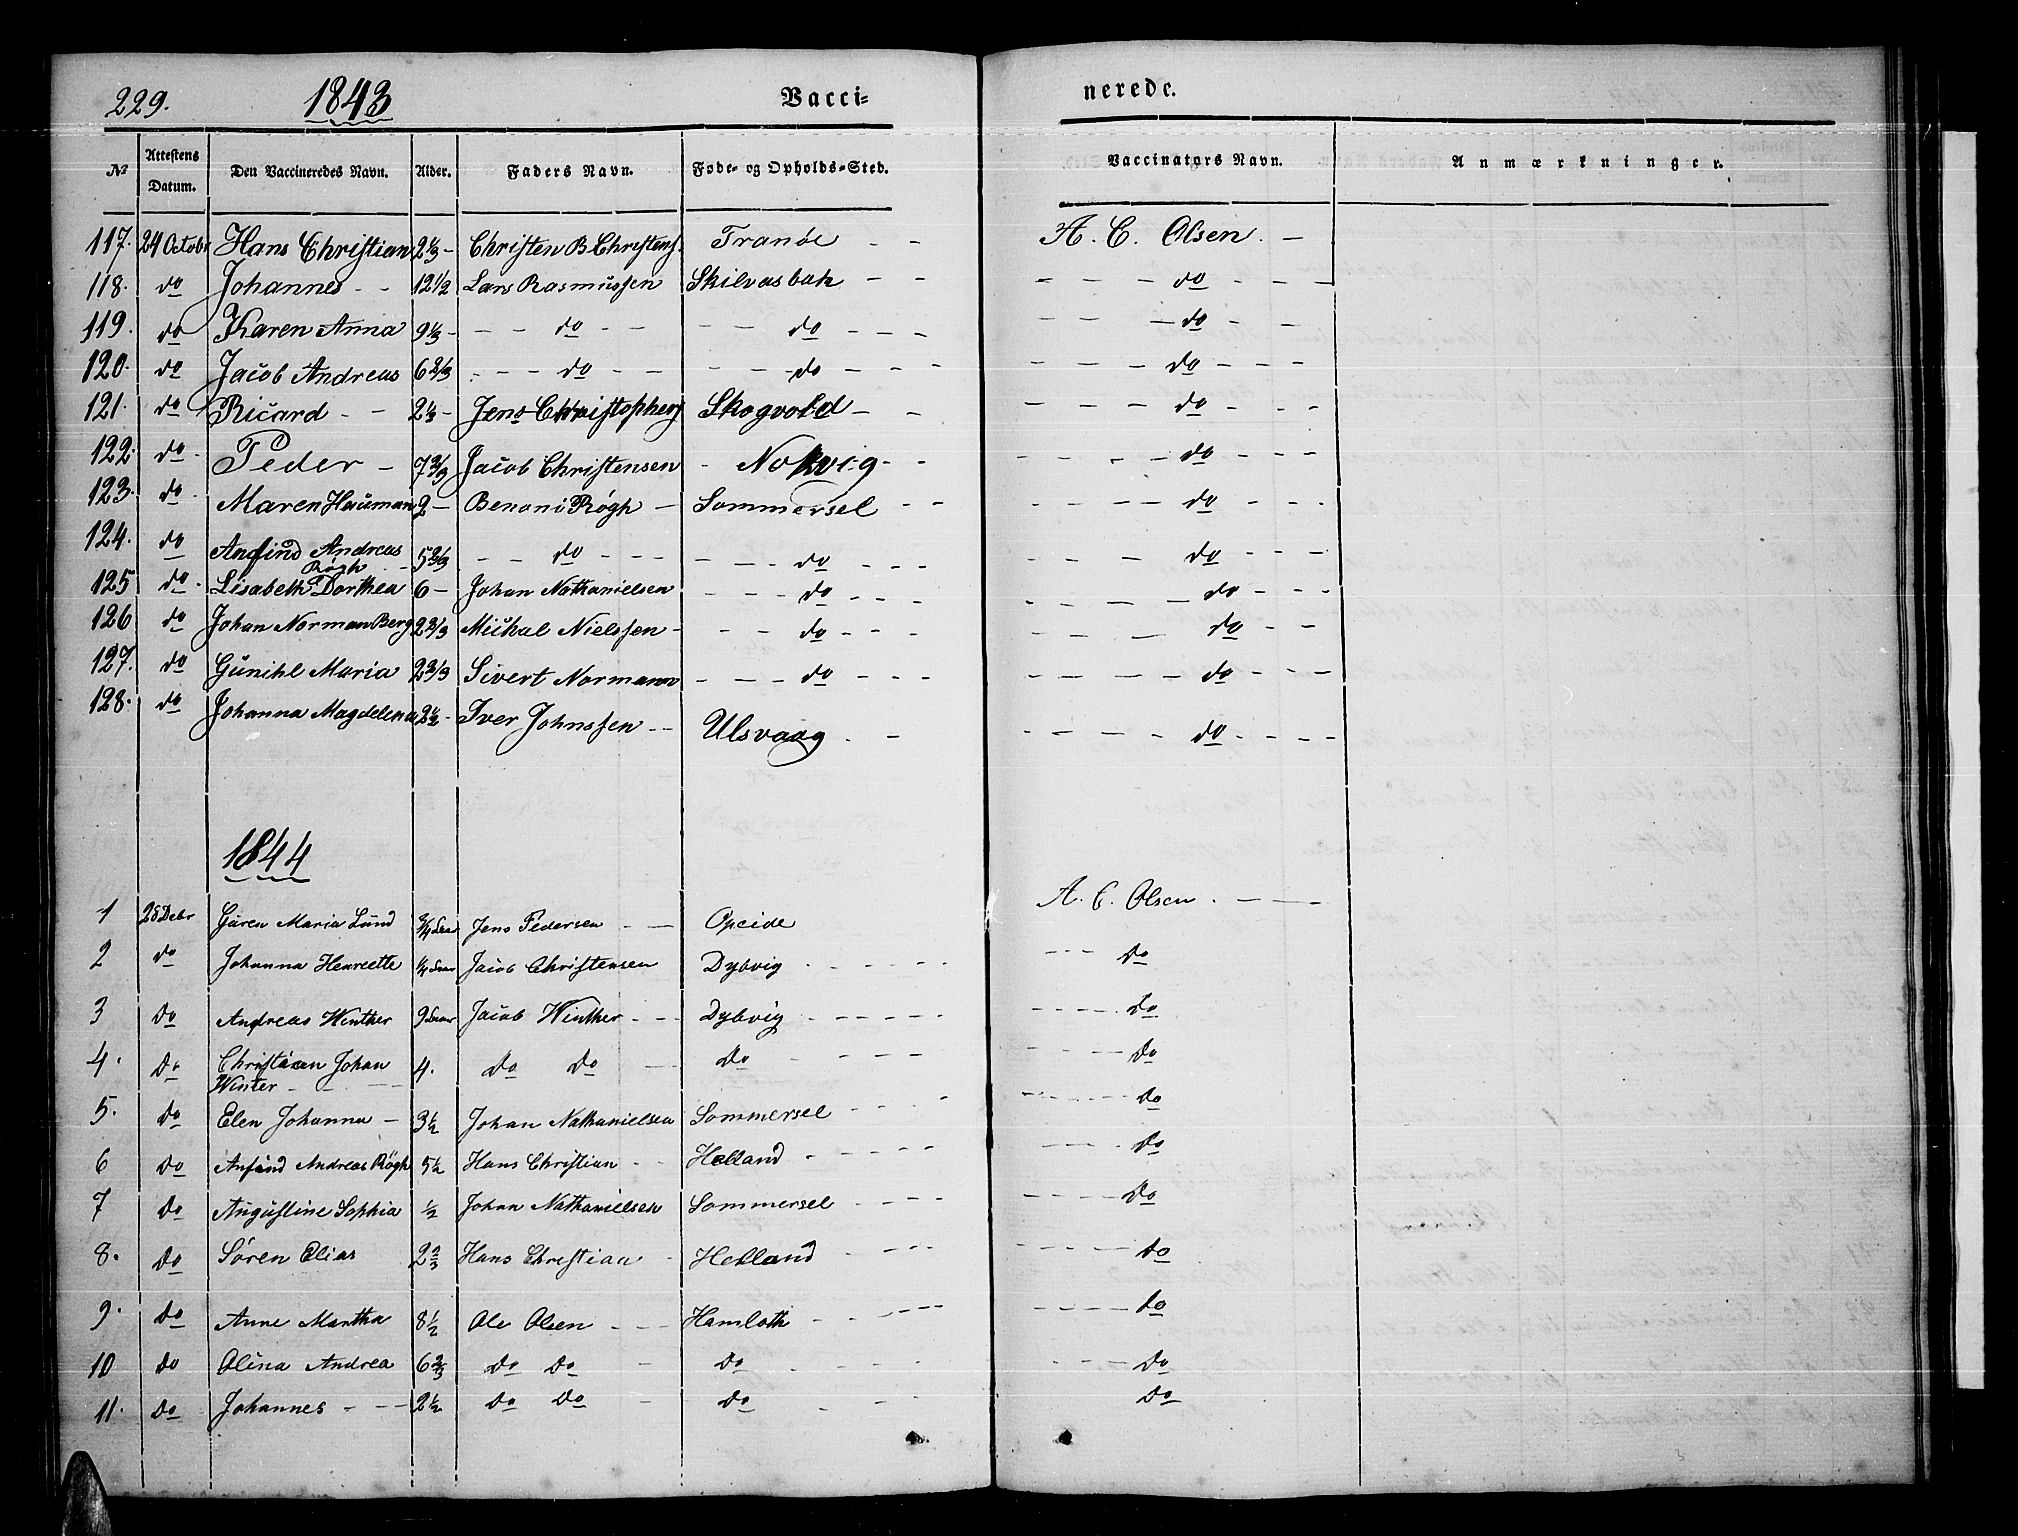 229. 1843 Vacci= nerede.
No Attestens Datum. Den Vaccineredes Navn. Alder. Faders Navn. Føde- og Opholds-Sted. Vaccinators Navn. Anmærkninger.
117. 24 Octobr Hans Christian 2 1/3 - Christen B. Christens. Tranöe - - A. C. Olsen. -
118. do Johannes - - 12 1/2 Lars Rasmussen Skilvasbak - - - - - - do - - - -
119. do Karen Anna 9 1/3 - - - do - - - - do - - - - - - do - -
120. do Jacob Andreas 6 2/3 - - - do - - - - - do - - - - - - do - - -
121. do Ricard - - 2 1/3 - Jens Christophers Skogvold - - - - - - do - - -
122. do Peder - 7 2/3 Jacob Christensen - Nokvig - - - - - do - - -
123. do Maren Hauman 2 - Benoni Røgh - Sommersel - - - - - - do - - -
124. do Anfind Andreas Røgh - 5 2/3 - - do - - - - - - do - - - - - - do - - -
125 do Lisabeth Dorthea 6 - Johan Nathanielsen - - - do - - - - - - - do - - -
126 do Johan Norman Berg 2 2/3 Michal Nielssen - - - do - - - - - do - -
127. do Gunihl Maria 2 2/3 Sivert Normann - - - do - - - - - - - do - - -
128. do Johanna Magdelena 2 1/2 - Iver Johnssen - - Ulsvaag - - - - - - do - - - -
1844
1 28 Debr Garen Maria Lund 3/4 Jens Pedersen - - Opeide A. C. Olsen. - - -
2 do Johanna Henreette 1/4 Jacob Christensen Dybvig - - - - - - - - do
3 do Andreas Winther 9 Jacob Winther - - - Dybvig - - - - - - - - - do
4. do Christian Johan Winter - - 4. do do - - do - - - - - - - - do
5. do Elen Johanna - 3 1/2 Johan Nathanielsen Sommersel - - - - - - - - - do
6 do Anfind Andreas Røgh 5 1/2 Hans Christian - - Helland - - - - - - - - do
7 do Angustine Sophia 1/2 Johan Nathanielsen Sommersel - - - - - - - - do
8. do Sören Elias 2 2/3 Hans Christian - Helland - - - - - - - - do
9. do Anne Martha 8 1/2 Ole Olsen - - - Hamloth - - - - - - - - - do
10 do Olina Andrea 6 2/3 do do - do - - - - - - - do
11. do Johannes - - - 2 1/2 do do - do - - do